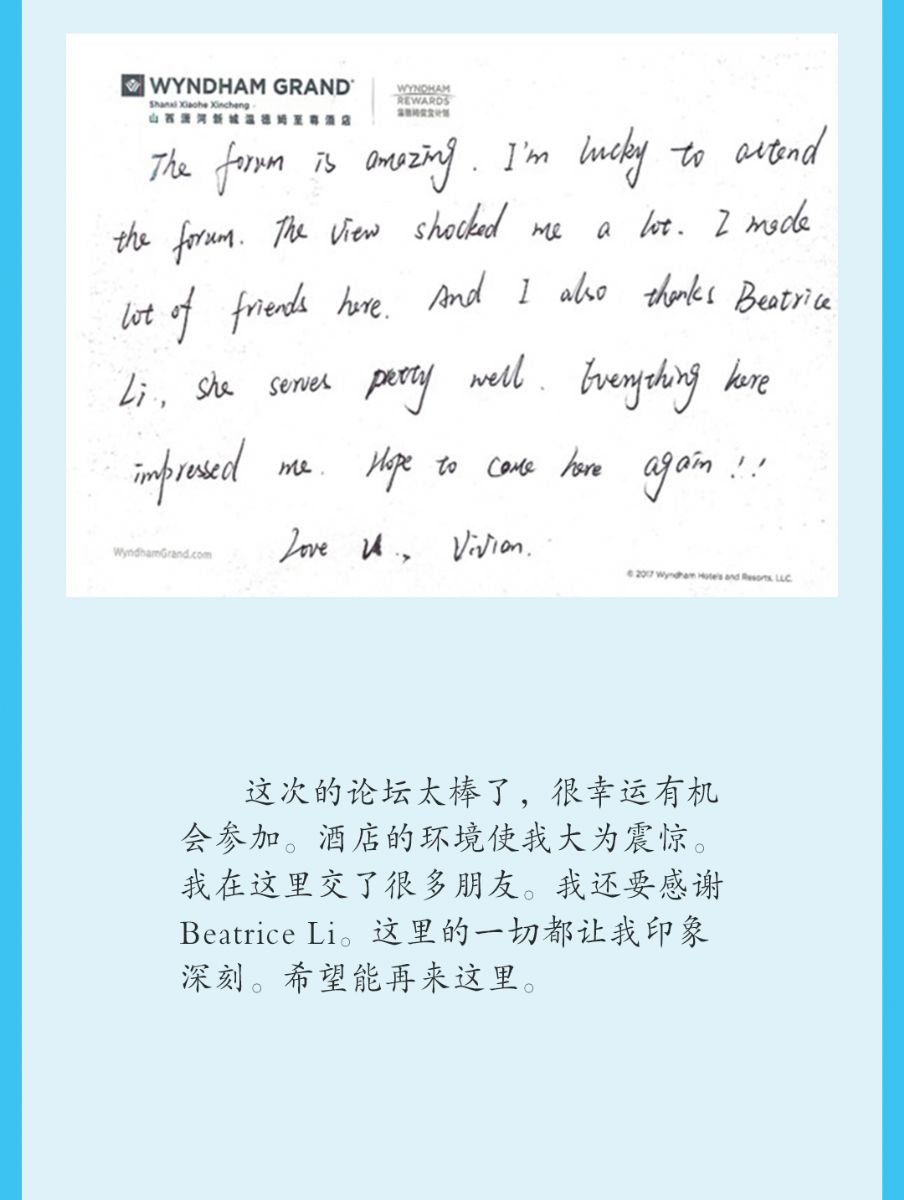 WYNDHAM GRAND
Shanxi Xiaohe Xincheng
山西潇河新城温德姆至尊酒店
WYNDHAM
REWARDS
温德姆奖赏计划
The forum is amazing. I'm lucky to attend
the forum. The view shocked me a lot. I made
lot of friends here. And I also thanks Beatrice
Li., she serves pretty well. Everything here
impressed me. Hope to come here again!!
Love u., Vivian.
WyndhamGrand.com
© 2017 Wyndham Hotels and Resorts, LLC.
这次的论坛太棒了，很幸运有机
会参加。酒店的环境使我大为震惊。
我在这里交了很多朋友。我还要感谢
Beatrice Li。这里的一切都让我印象
深刻。希望能再来这里。